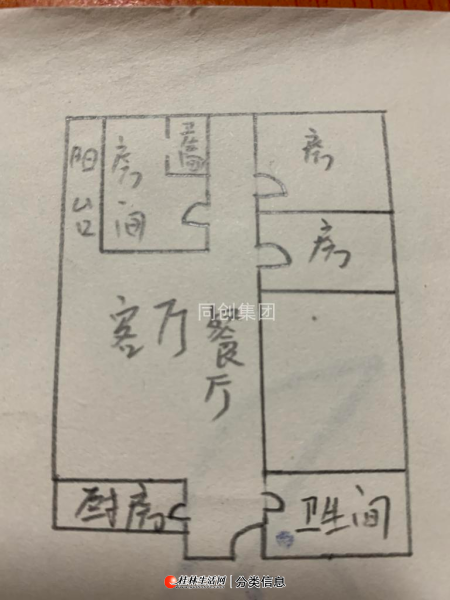 阳台
房间
卫生间
房
房
客厅
餐厅
同创集团
厨房
卫生间
桂林生活网 分类信息